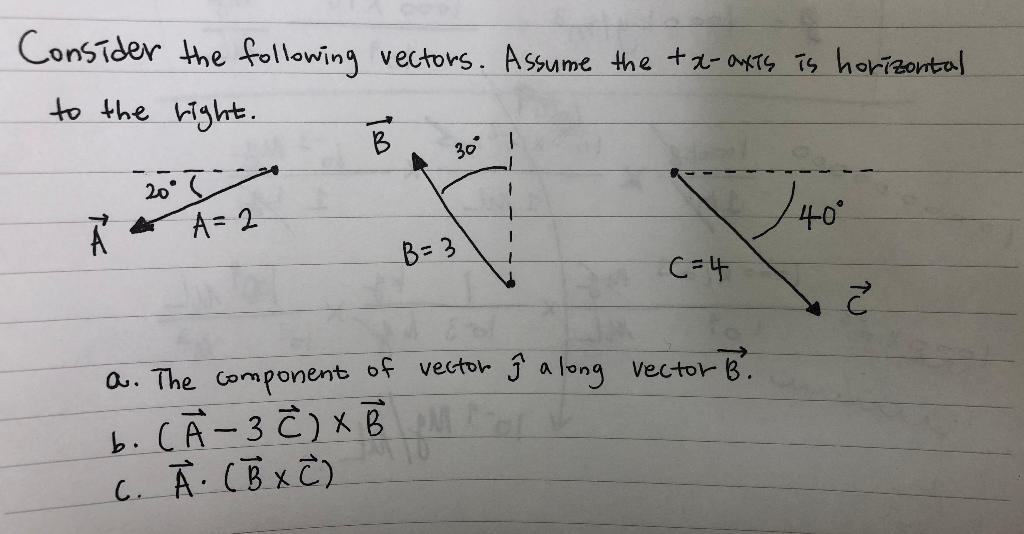 Consider the following vectors. Assume the +x-axis is horizontal
to the right.
20°
A⃗
A = 2
B⃗
30°
B = 3
40°
C = 4
C⃗
a. The component of vector ĵ along vector B⃗.
b. (A⃗ - 3 C⃗) × B⃗
c. A⃗ · (B⃗ × C⃗)